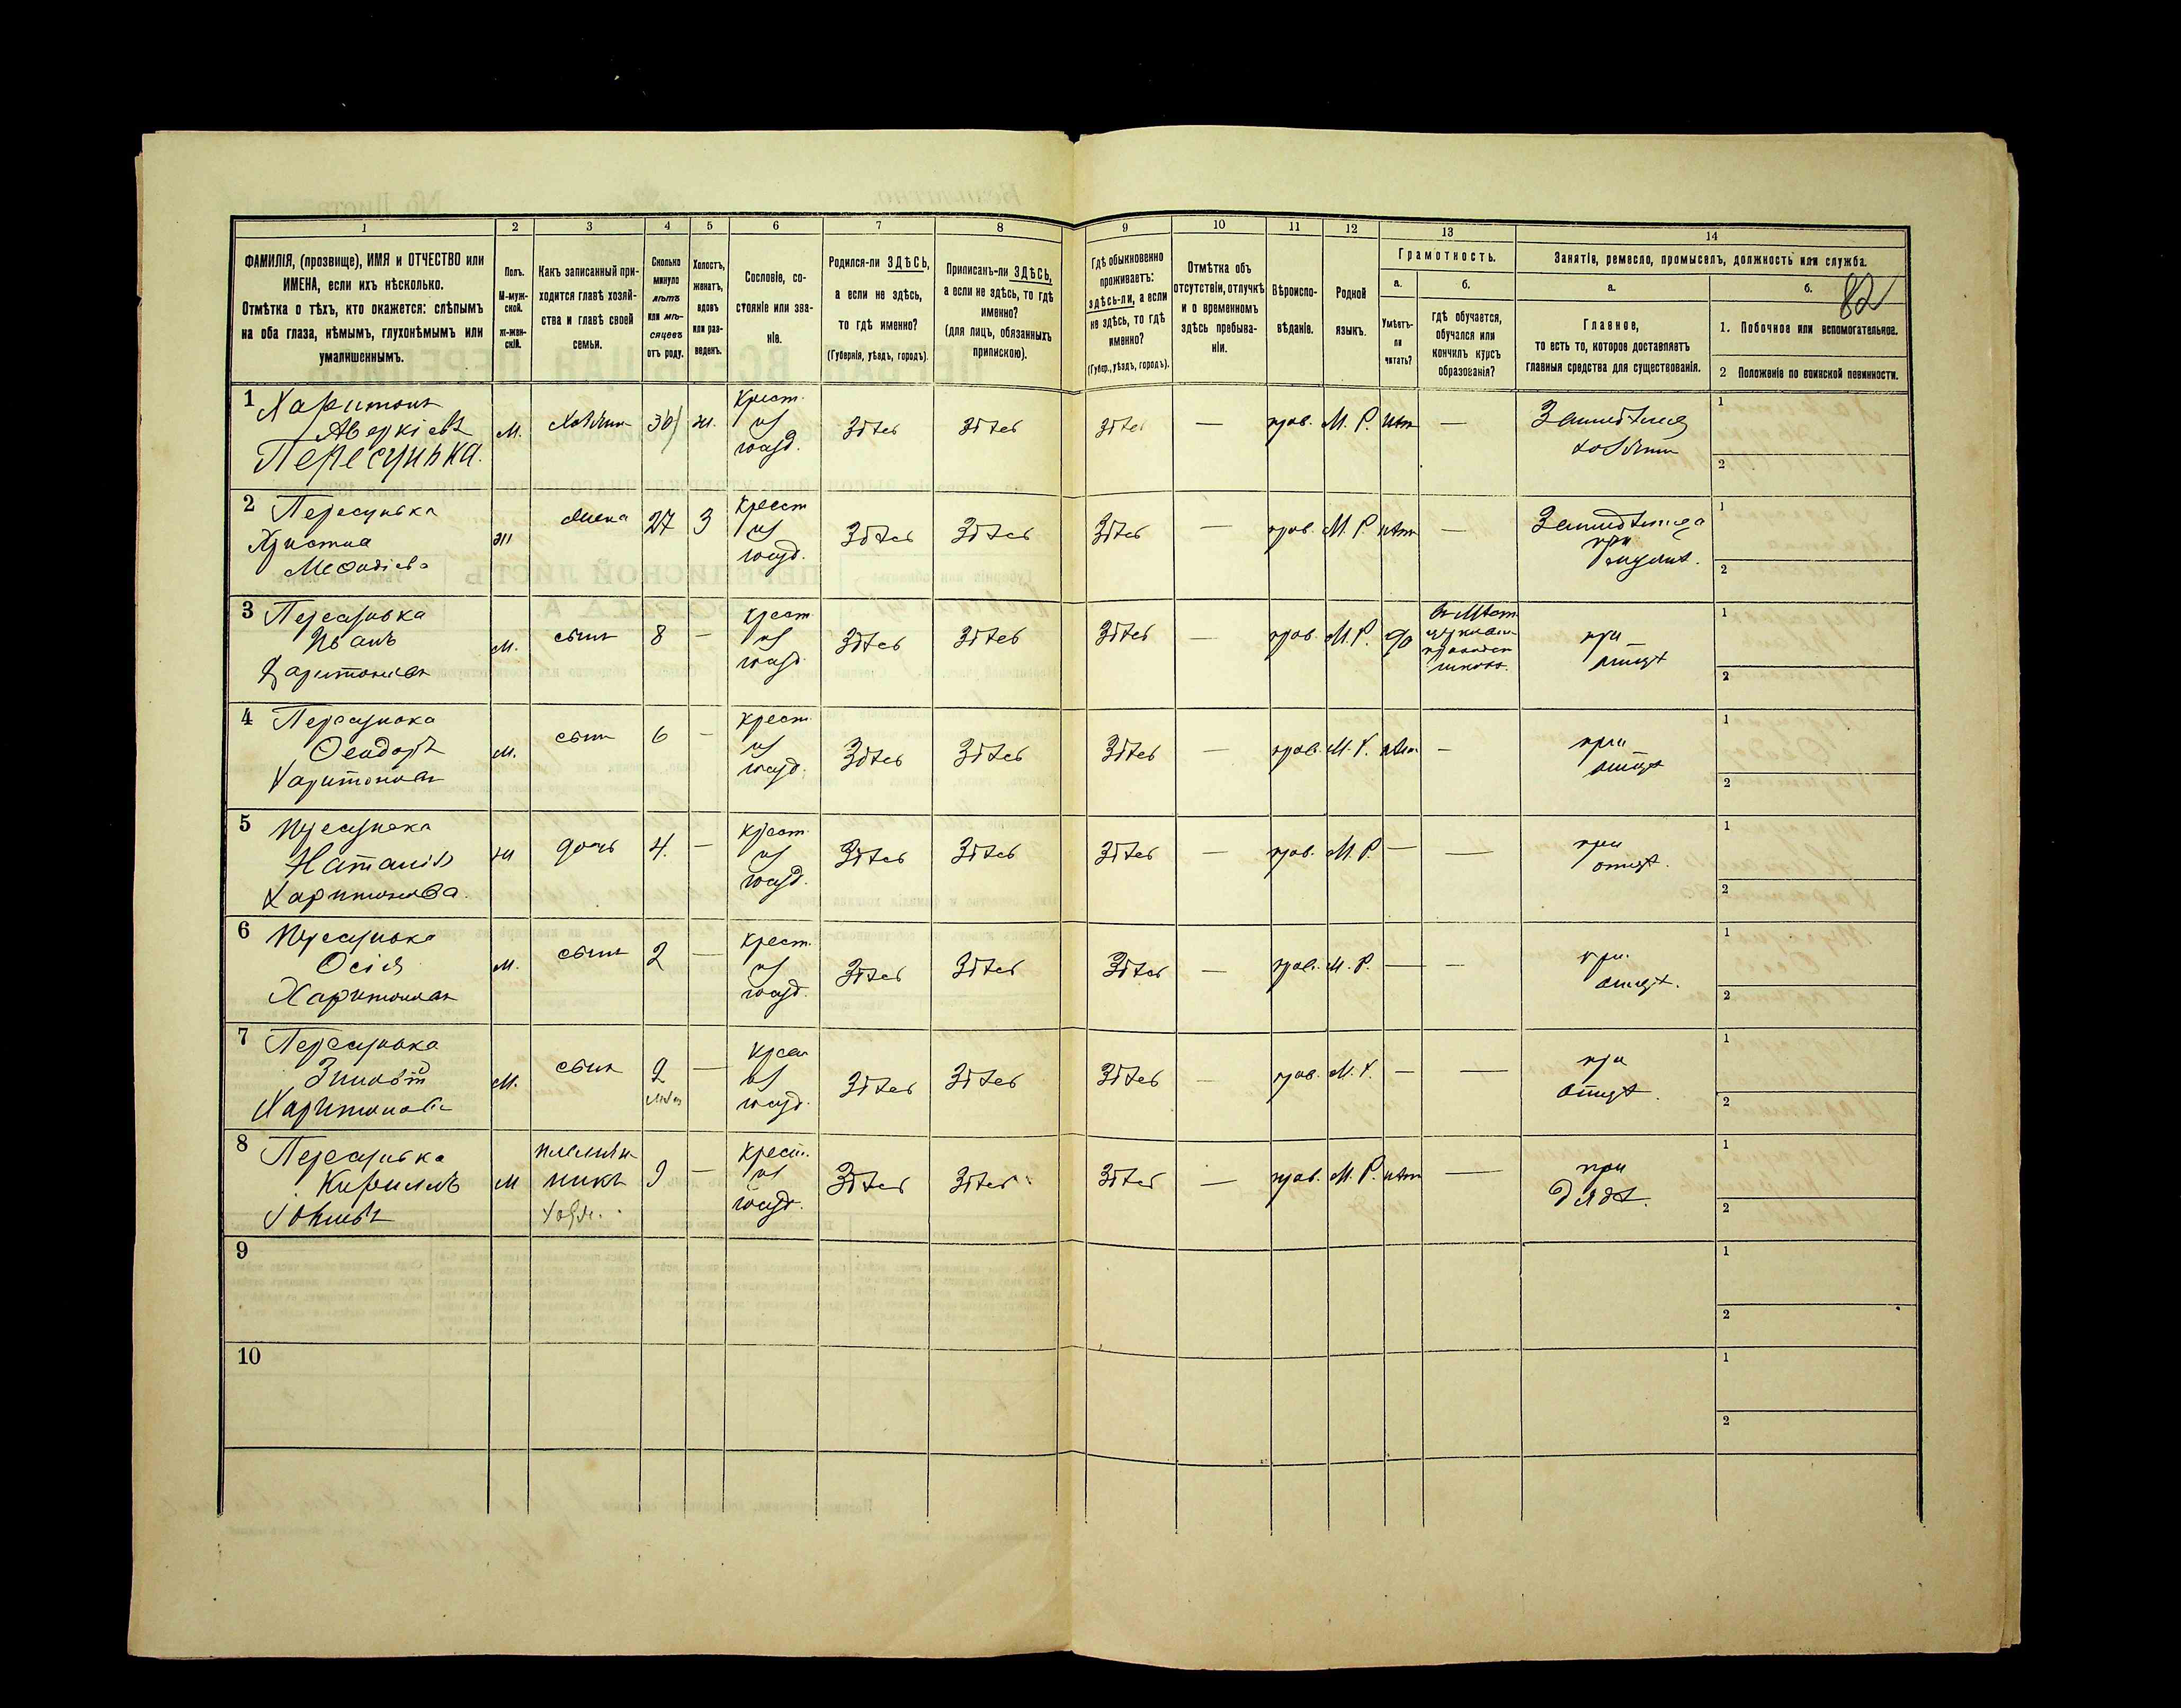 82
1 2 3 4 5 6 7 8 9 10 11 12 13 14
ФАМИЛІЯ, (прозвище), ИМЯ и ОТЧЕСТВО или
ИМЕНА, если ихъ нѣсколько.
Отмѣтка о тѣхъ, кто окажется: слѣпымъ
на оба глаза, нѣмымъ, глухонѣмымъ или
умалишеннымъ.
Полъ.
М-муж-
ской.
ж-жен-
скій.
Какъ записанный при-
ходится главѣ хозяй-
ства и главѣ своей
семьи.
Сколько
минуло
лѣтъ
или мѣ-
сяцевъ
отъ роду.
Холостъ,
женатъ,
вдовъ
или раз-
веденъ.
Сословіе, со-
стояніе или зва-
ніе.
Родился-ли ЗДѢСЬ,
а если не здѣсь,
то гдѣ именно?
(Губернія, уѣздъ, городъ).
Приписанъ-ли ЗДѢСЬ,
а если не здѣсь, то гдѣ
именно?
(для лицъ, обязанныхъ
припискою).
Гдѣ обыкновенно
проживаетъ:
здѣсь-ли, а если
не здѣсь, то гдѣ
именно?
(Губер., уѣздъ, городъ).
Отмѣтка объ
отсутствіи, отлучкѣ
и о временномъ
здѣсь пребыва-
ніи.
Вѣроиспо-
вѣданіе.
Родной
языкъ.
Грамотность.
а.
Умѣетъ-
ли
читать?
б.
гдѣ обучается,
обучался или
кончилъ курсъ
образованія?
Занятіе, ремесло, промыселъ, должность или служба.
а.
Главное,
то есть то, которое доставляетъ
главныя средства для существованія.
б.
1. Побочное или вспомогательное.
2 Положеніе по воинской повинности.
1 Харитонъ
Аверкіевъ
Пересунька.
м. хозяин ж. крест. из госуд. здѣсь здѣсь здѣсь — прав. М. Р. нѣт —
1
2
2 Пересунька
Христина
ж жена 27 З крест из госуд. здѣсь здѣсь здѣсь — прав. М. Р. нѣт —
1
2
3 Пересунька
Иванъ
Харитоновъ
м. сынъ 8 — крест. из госуд. здѣсь здѣсь здѣсь — прав. М. Р. да
школѣ.
при
отцѣ
1
2
4 Пересунька
Феодоръ
Харитоновъ
м. сынъ 6 — крест. из госуд. здѣсь здѣсь здѣсь — прав. М. Р. нѣт —
при
отцѣ
1
2
5 Пересунька
Наталія
Харитонова.
ж дочь 4. — крест. из госуд. здѣсь здѣсь здѣсь — прав. М. Р. — —
при
отцѣ.
1
2
6 Пересунька
Осія
Харитоновъ
м. сынъ 2 — крест. из госуд. здѣсь здѣсь здѣсь — прав. М. Р. — —
при
отцѣ.
1
2
7 Пересунька
Харитоновъ
м. сынъ 2 — крест из госуд. здѣсь здѣсь здѣсь — прав. М. Р. — —
при
отцѣ.
1
2
8 Пересунька
Кириллъ
м племян-
никъ
9 — крест. из госуд. здѣсь здѣсь здѣсь — прав. М. Р. нѣт —
при
дядѣ.
1
2
9
1
2
10
1
2